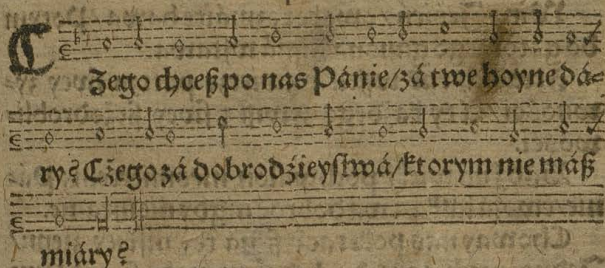 CZego chceß po nas Pánie/zá twe hoyne dá⸗
ry? Cżego zá dobrodźieyſtwá/ktorym nie máß
miáry?